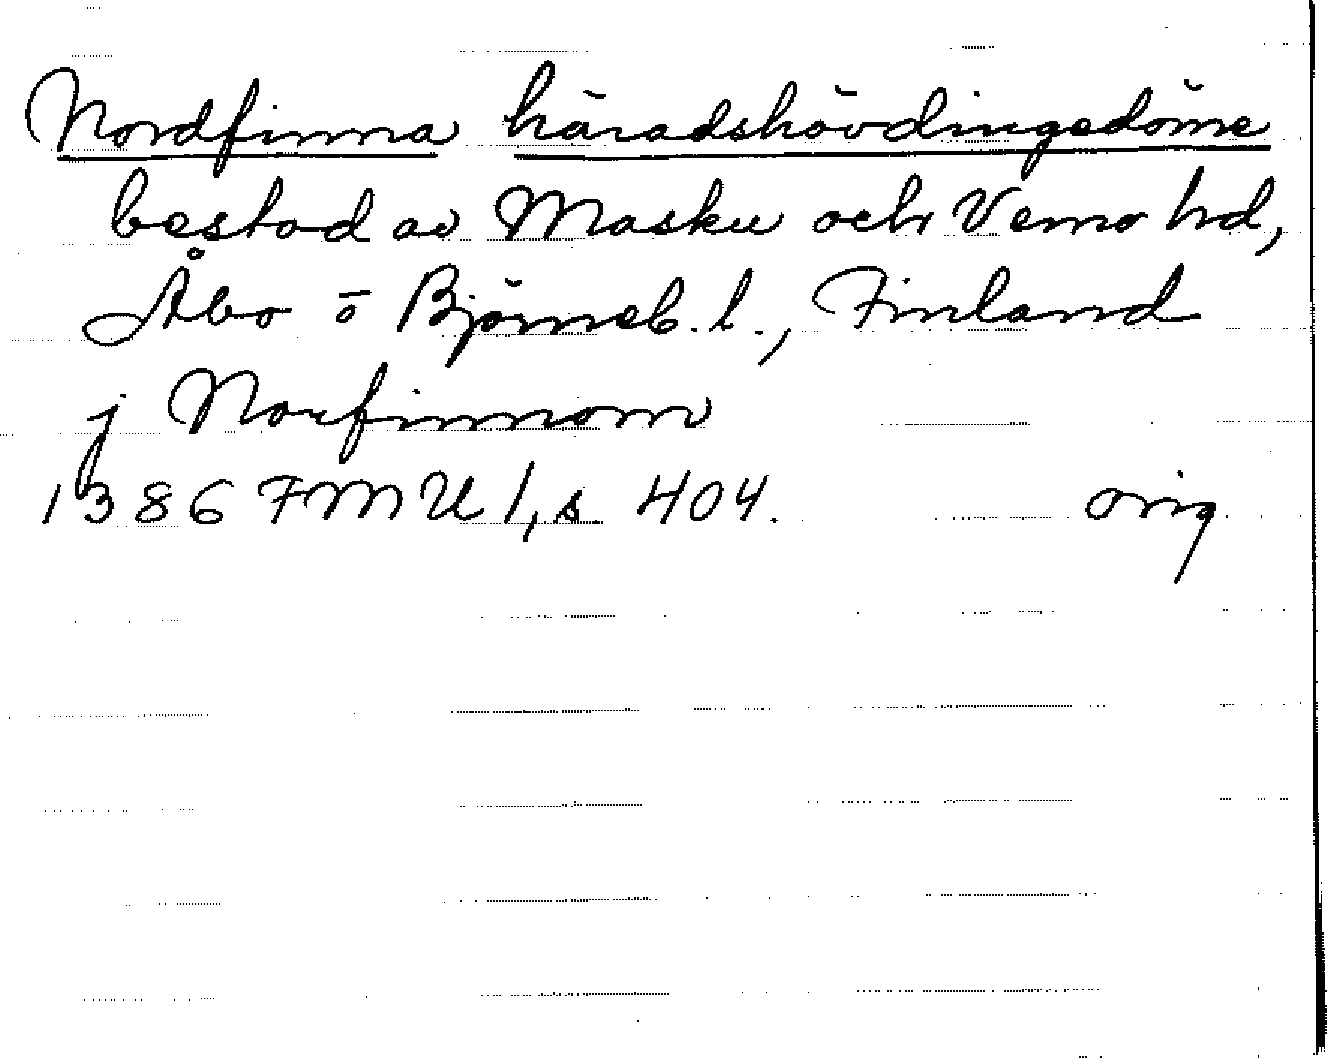 Nordfinna häradshövdingedöme
bestod av Masku och Vemo hd,
Åbo o Björneb. l., Finland
j Norfinnom
1386 FMU 1, s 404. orig